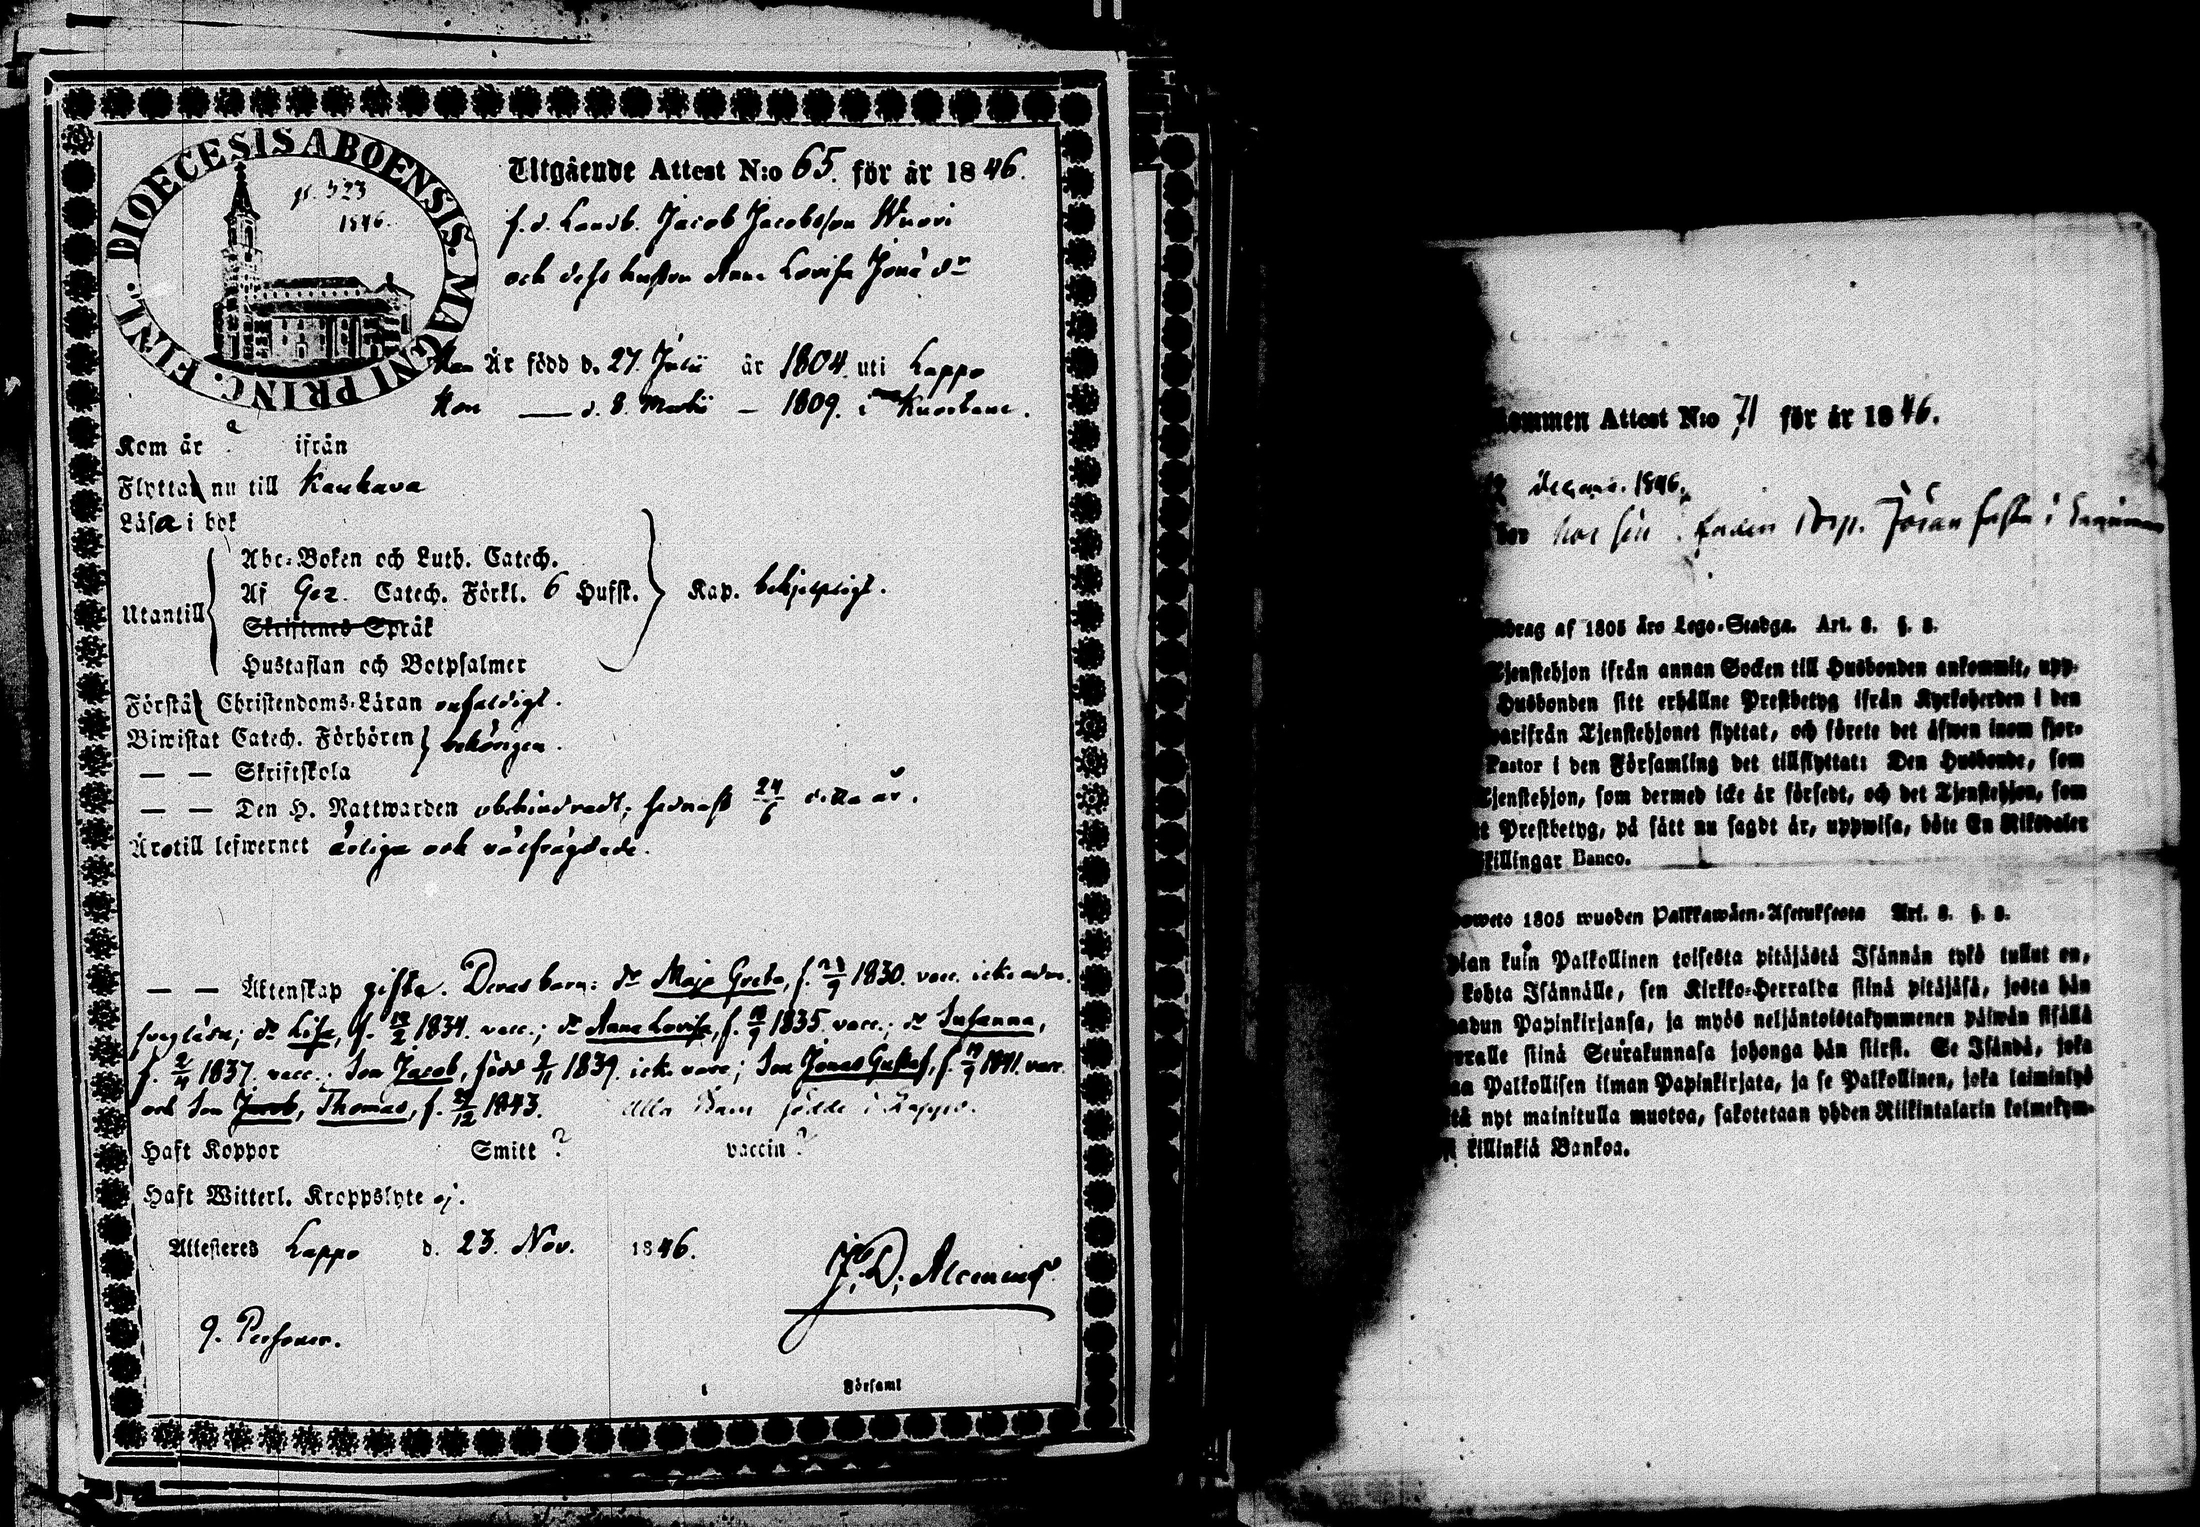 DIOECESIS ABOENSIS. MAGNI PRINC. FINL.
p. 323
1846.
Utgående Attest N:o 65. för år 1846.
f. d. Landb. Jacob Jacobsson Wuori
och dess hustru Anna Lovisa Jonæ dr
Han Är född d. 27. Julii år 1804. uti Lappo
Hon — d. 8. Martii — 1809. i Kuortane.
Kom år ifrån
Flytta nu till Kauhava
Läsa i bok
Utantill
Abc-Boken och Luth. Catech.
Af Gez. Catech. Förkl. 6 Hufst. Kap. behjelpligt.
Skriftenes Språk
Hustaflan och Botpsalmer
Förstå Christendoms-Läran enfaldigt.
Biwistat Catech. Förhören behörigen.
— — Skriftskola
— — Den H. Nattwarden obehindradt; sednast 24/6 detta år.
Äro till lefwernet ärliga och välfrägdade.
— — Äktenskap gifta. Deras barn: dr Maja Greta, f. /9 1830. vacc. icke adm.
svagläsa; dr Lisa, f. /2 1834. vacc.; dr Anna Lovisa, f. /9 1835. vacc.; dr Susanna,
f. 2/4 1837. vacc.; Son Jacob, född 2/11 1839. icke vacc; Son Jonas Gustaf, f. 19/9 1841. vacc.
och Son Jacob, Thomas, f. /12 1843. Alla barn födde i Lappo.
Haft Koppor Smitt ? vaccin ?
Haft Witterl. Kroppslyte ej.
Attesteres Lappo d. 23. Nov. 1846.
J. D. Alcenius
9. Personer.
Församl
kommen Attest N:o 71 för år 1846.
decemb. 1846.
hos sin Torp. Jöran
drag af 1805 års Lego-Stadga. Art. 8. §. 8.
Tjenstehjon ifrån annan Socken till Husbonden ankommit, upp-
Husbonden sitt erhållne Prestbetyg ifrån Kyrkoherden i den
warifrån Tjenstehjonet flyttat, och förete det äfwen inom fjor-
Pastor i den Församling det tillflyttat: Den Husbonde, som
Tjenstehjon, som dermed icke är försedt, och det Tjenstehjon, som
t Prestbetyg, på sätt nu sagdt är, uppwisa, böte En Riksdaler
skillingar Banco.
oweto 1805 wuoden Palkkawäen-Asetuksesta Art. 8. §. 8.
kuin Palkollinen toisesta pitäjästä Isännän tykö tullut on,
kohta Isännälle, sen Kirkko-Herralda siinä pitäjäsä, josta hän
Papinkirjansa, ja myös neljäntoistakymmenen päiwän sisällä
siinä Seurakunnasa johonga hän siirsi. Se Isändä, joka
Palkollisen ilman Papinkirjata, ja se Palkollinen, joka laiminlyö
tä nyt mainitulla muotoa, sakotetaan yhden Riikintalarin kolmekym-
killinkiä Bankoa.